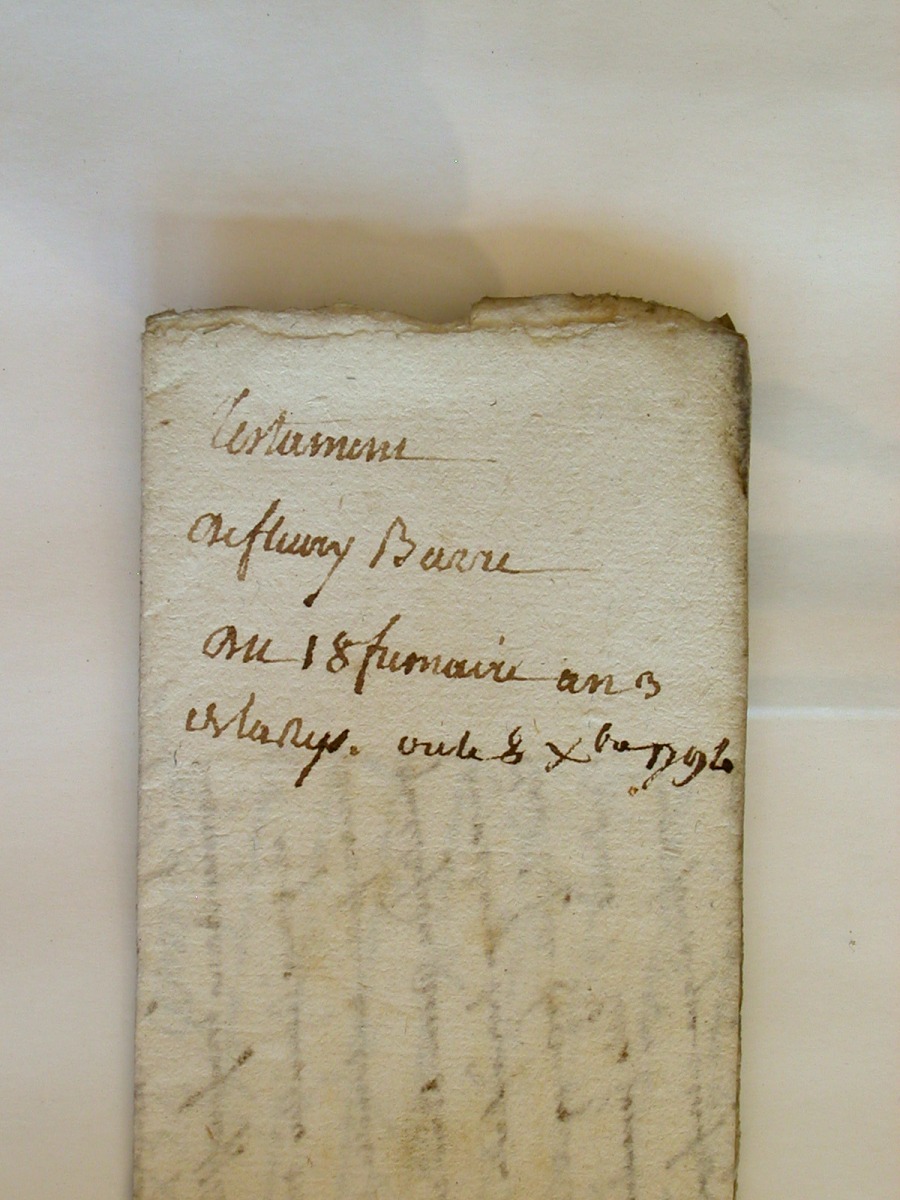 Testament
de fleury Barre
du 18 frimaire an 3
ou le 8 Xbre 1794